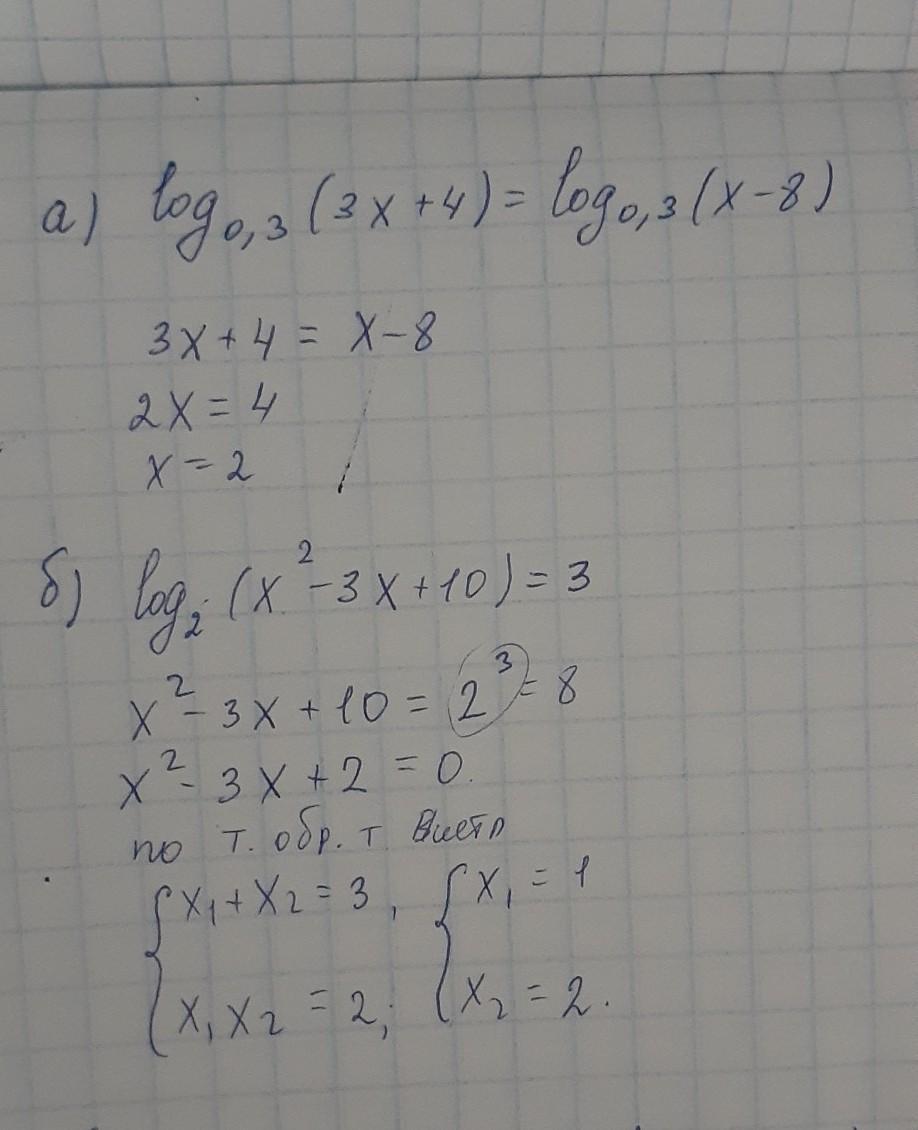 а) log₀,₃(3x+4) = log₀,₃(x-8)
3x+4 = x-8
2x = 4
x = 2
б) log₂(x²-3x+10) = 3
x²-3x+10 = 2³ = 8
x²-3x+2 = 0.
по т. обр. т. Виета
{x₁+x₂ = 3, {x₁ = 1
{x₁x₂ = 2; {x₂ = 2.